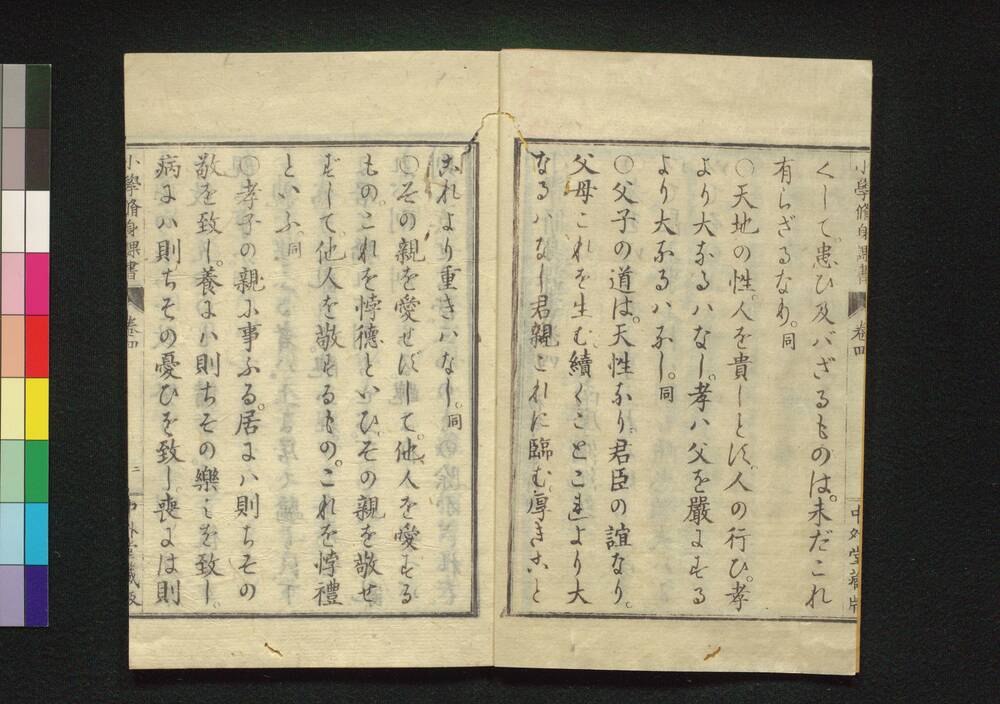 小學脩身課書
卷四
中外堂藏版
くして患ひ及バざるものは。未だこれ
有らざるなり。同
○天地の性。人を貴しとす。人の行ひ。孝
より大なるハなし。孝ハ父を嚴にする
より大なるハなし。同
○父子の道は。天性なり。君臣の誼なり。
父母これを生む。續くことこれより大
なるハなし君親これに臨む。厚きこと
これより重きハなし。同
○その親を愛せずして。他人を愛する
もの。これを悖德といひ。その親を敬せ
ずして。他人を敬するもの。これを悖禮
といふ。同
○孝子の親に事ふる。居にハ則ちその
敬を致し。養にハ則ちその樂しみを致し。
病にハ則ちその憂ひを致し喪には則
小學脩身課書
卷四
二
中外堂藏版